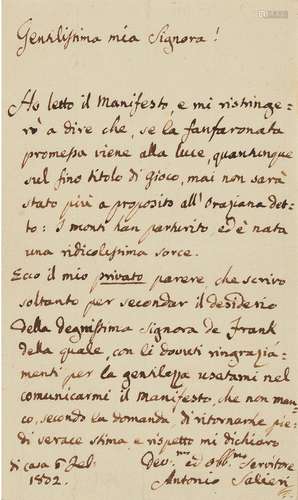 Gentilissima mia Signora!
Ho letto il Manifesto, e mi ristringe-
rò a dire che, se la fanfaronata
promessa viene alla luce, quantunque
sul fino titolo di Gioco, mai non sarà
stato più a proposito all' Oraziana det-
to: I monti han partorito, ed è nata
una ridicolissima sorce.
Ecco il mio privato parere, che scrivo
soltanto per secondar il desiderio
della degnissima Signora de Frank
della quale, con li dovuti ringrazia-
menti per la gentilezza usatami nel
comunicarmi il Manifesto, che non man-
co, secondo la domanda, di ritornarle pie-
di verace stima e rispetto mi dichiaro
di casa 5 Feb:
1802.
Dev.mo ed obb.mo Servitore
Antonio Salieri